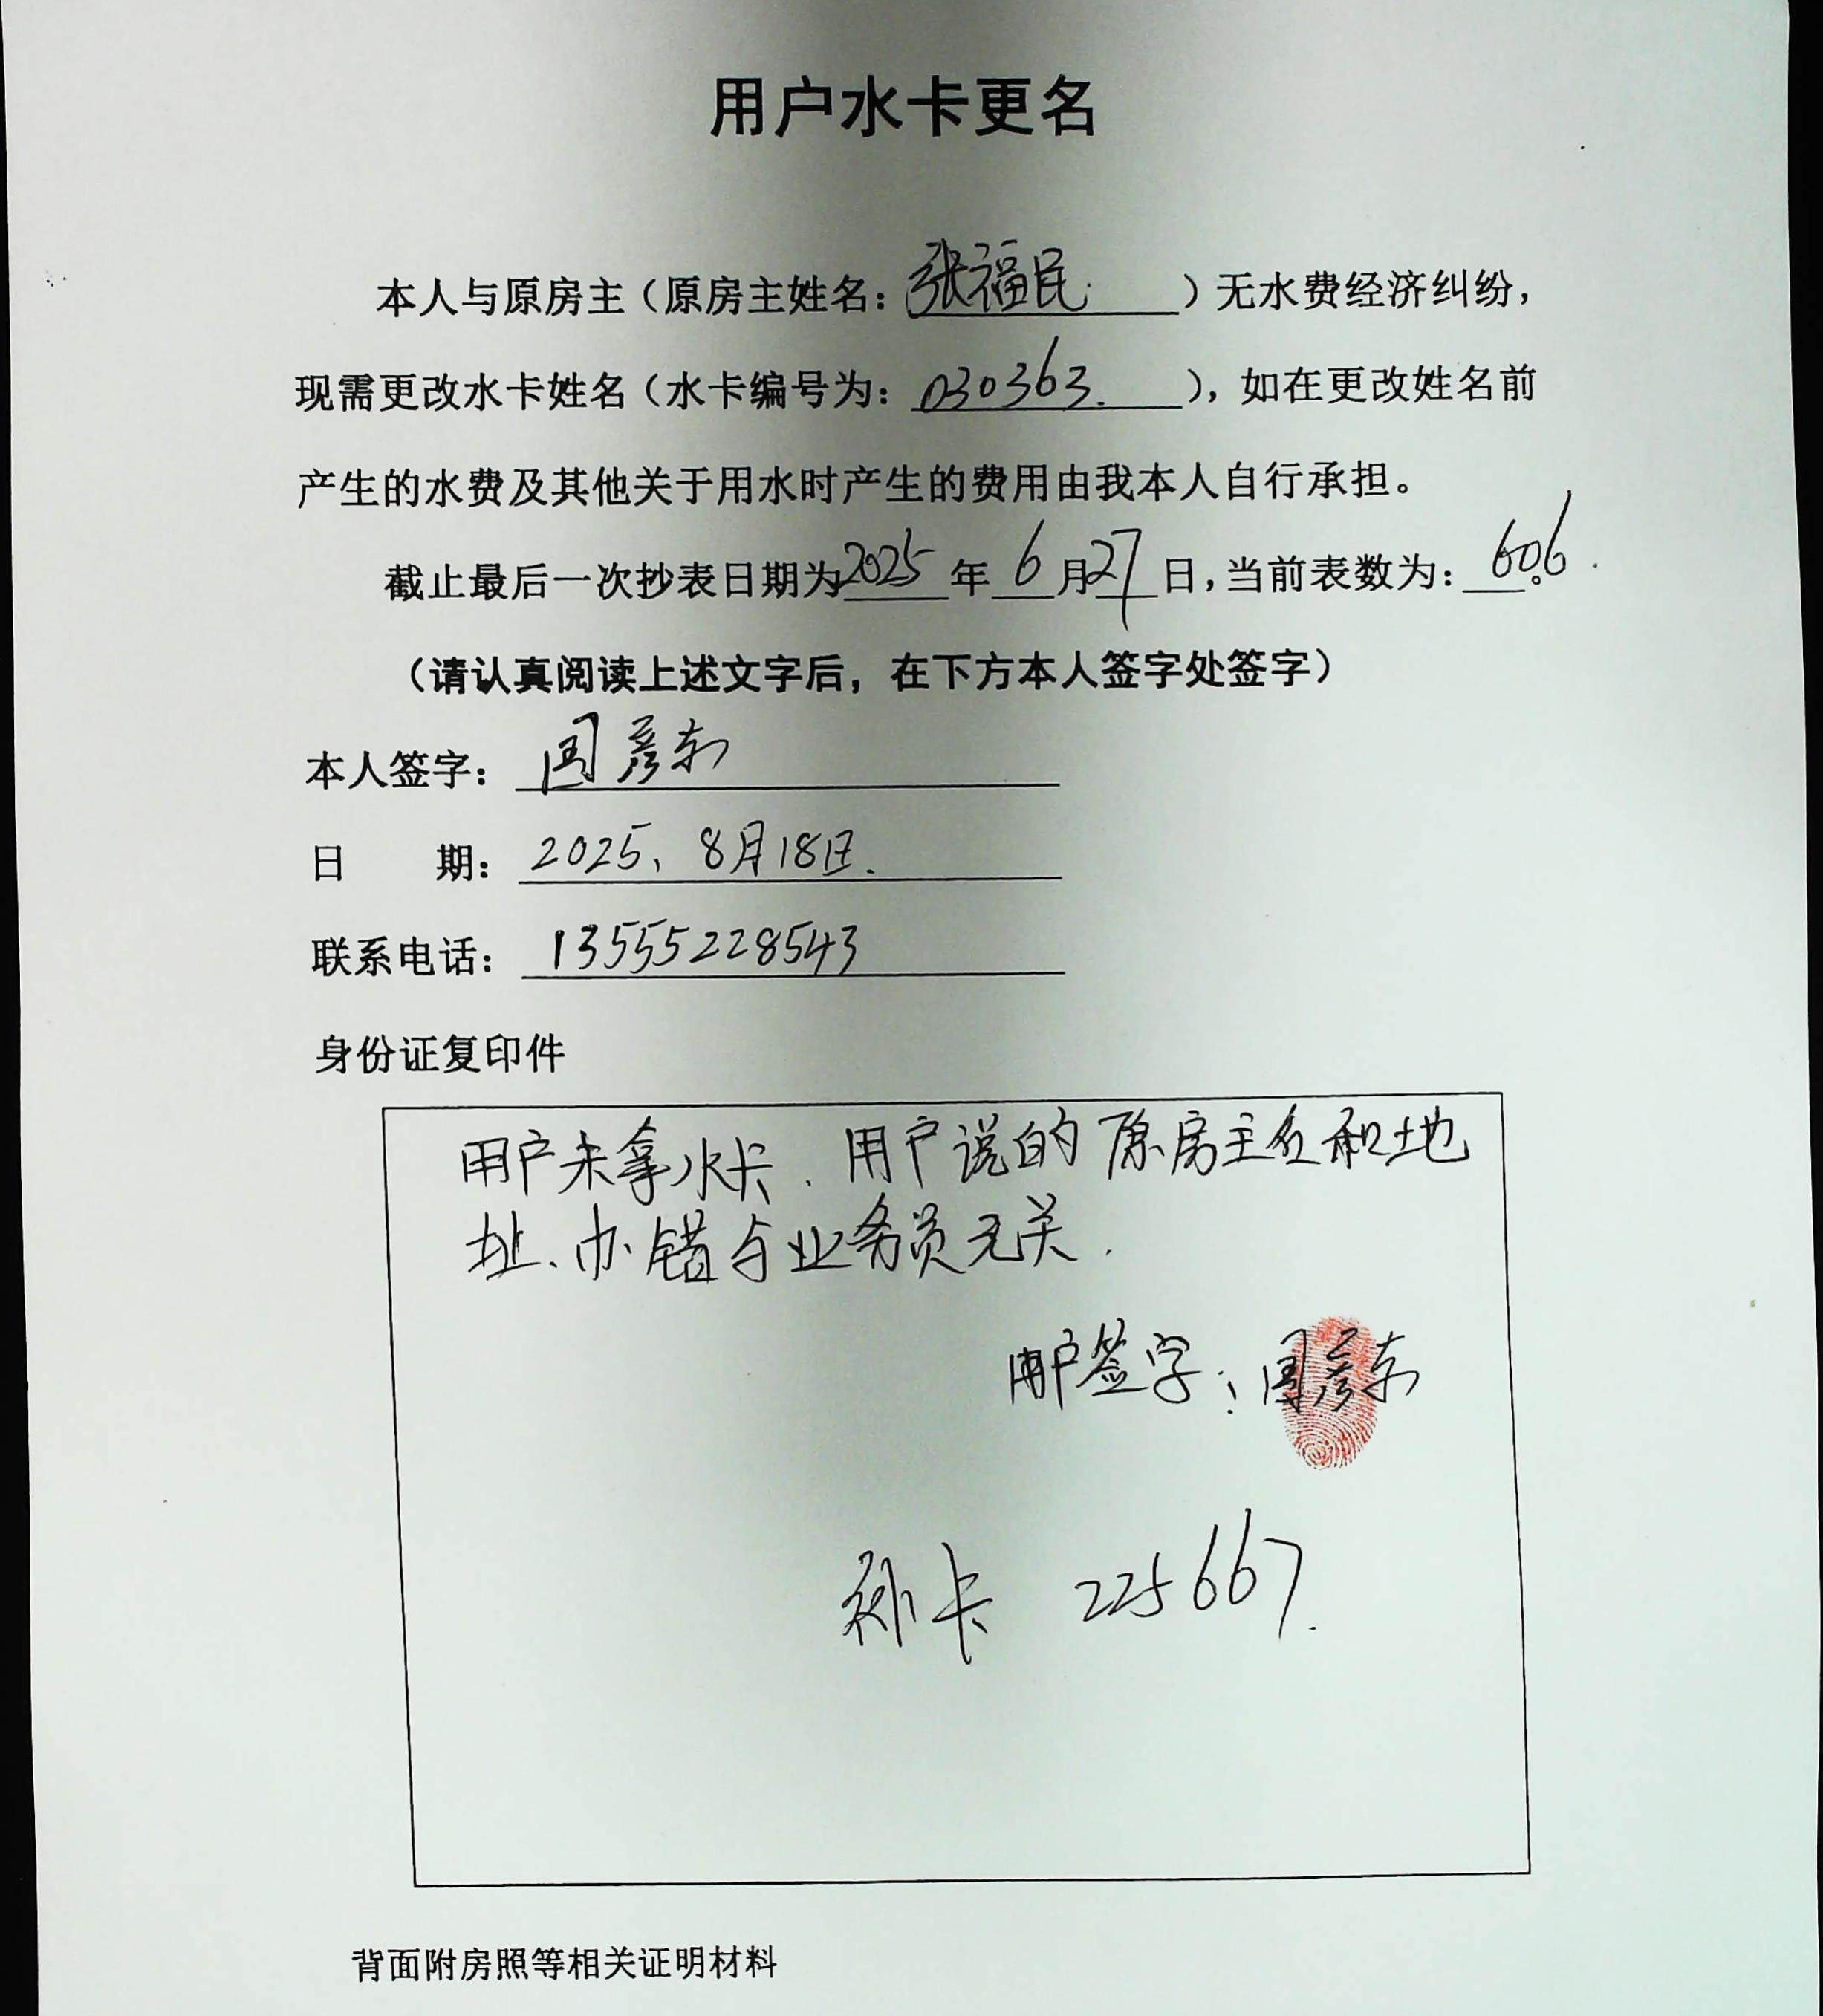 用户水卡更名
本人与原房主（原房主姓名：张福民）无水费经济纠纷，
现需更改水卡姓名（水卡编号为：030363.），如在更改姓名前
产生的水费及其他关于用水时产生的费用由我本人自行承担。
截止最后一次抄表日期为2025年6月27日，当前表数为：606.
（请认真阅读上述文字后，在下方本人签字处签字）
本人签字：彦东
日 期：2025、8月18日.
联系电话：13555228543
身份证复印件
用户未拿水卡.用户说的原房主名和地
址、办错与业务员无关.
用户签字：彦东
补卡 225667.
背面附房照等相关证明材料